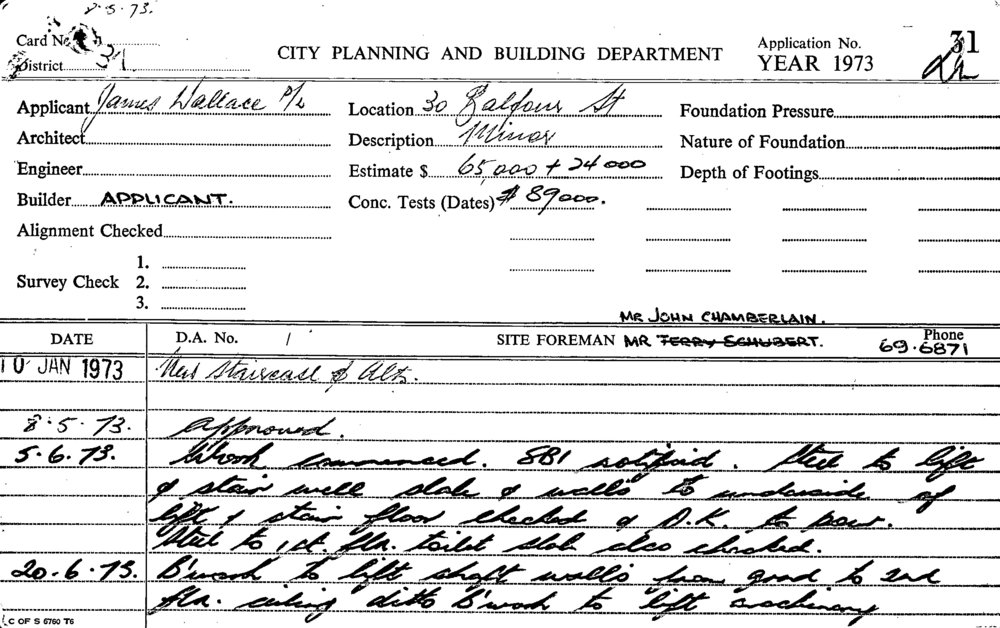 8.5.73.
Card No
District 31
CITY PLANNING AND BUILDING DEPARTMENT
Application No.
YEAR 1973
31
Applicant James Wallace P/L
Location 30 Balfour St
Foundation Pressure
Architect
Description Minor
Nature of Foundation
Engineer
Estimate $ 65,000 + 24000
Depth of Footings
Builder APPLICANT.
Conc. Tests (Dates) $ 89000.
Alignment Checked
Survey Check
1.
2.
3.
MR JOHN CHAMBERLAIN.
DATE
D.A. No. /
SITE FOREMAN MR TERRY SCHUBERT.
Phone
69.6871
10 JAN 1973 New Staircase & Alts.
8.5.73. Approved.
5.6.73. commenced. SBI notified. Steel to lift
& stair well slab & walls to underside of
lift & stair floor checked & O.K. to pour.
Steel to 1st. flr. toilet slab also checked.
20.6.73. B'work to lift shaft walls from grnd to 2nd
flr. ceiling ditto B'work to lift machinery
C OF S 6760 T6